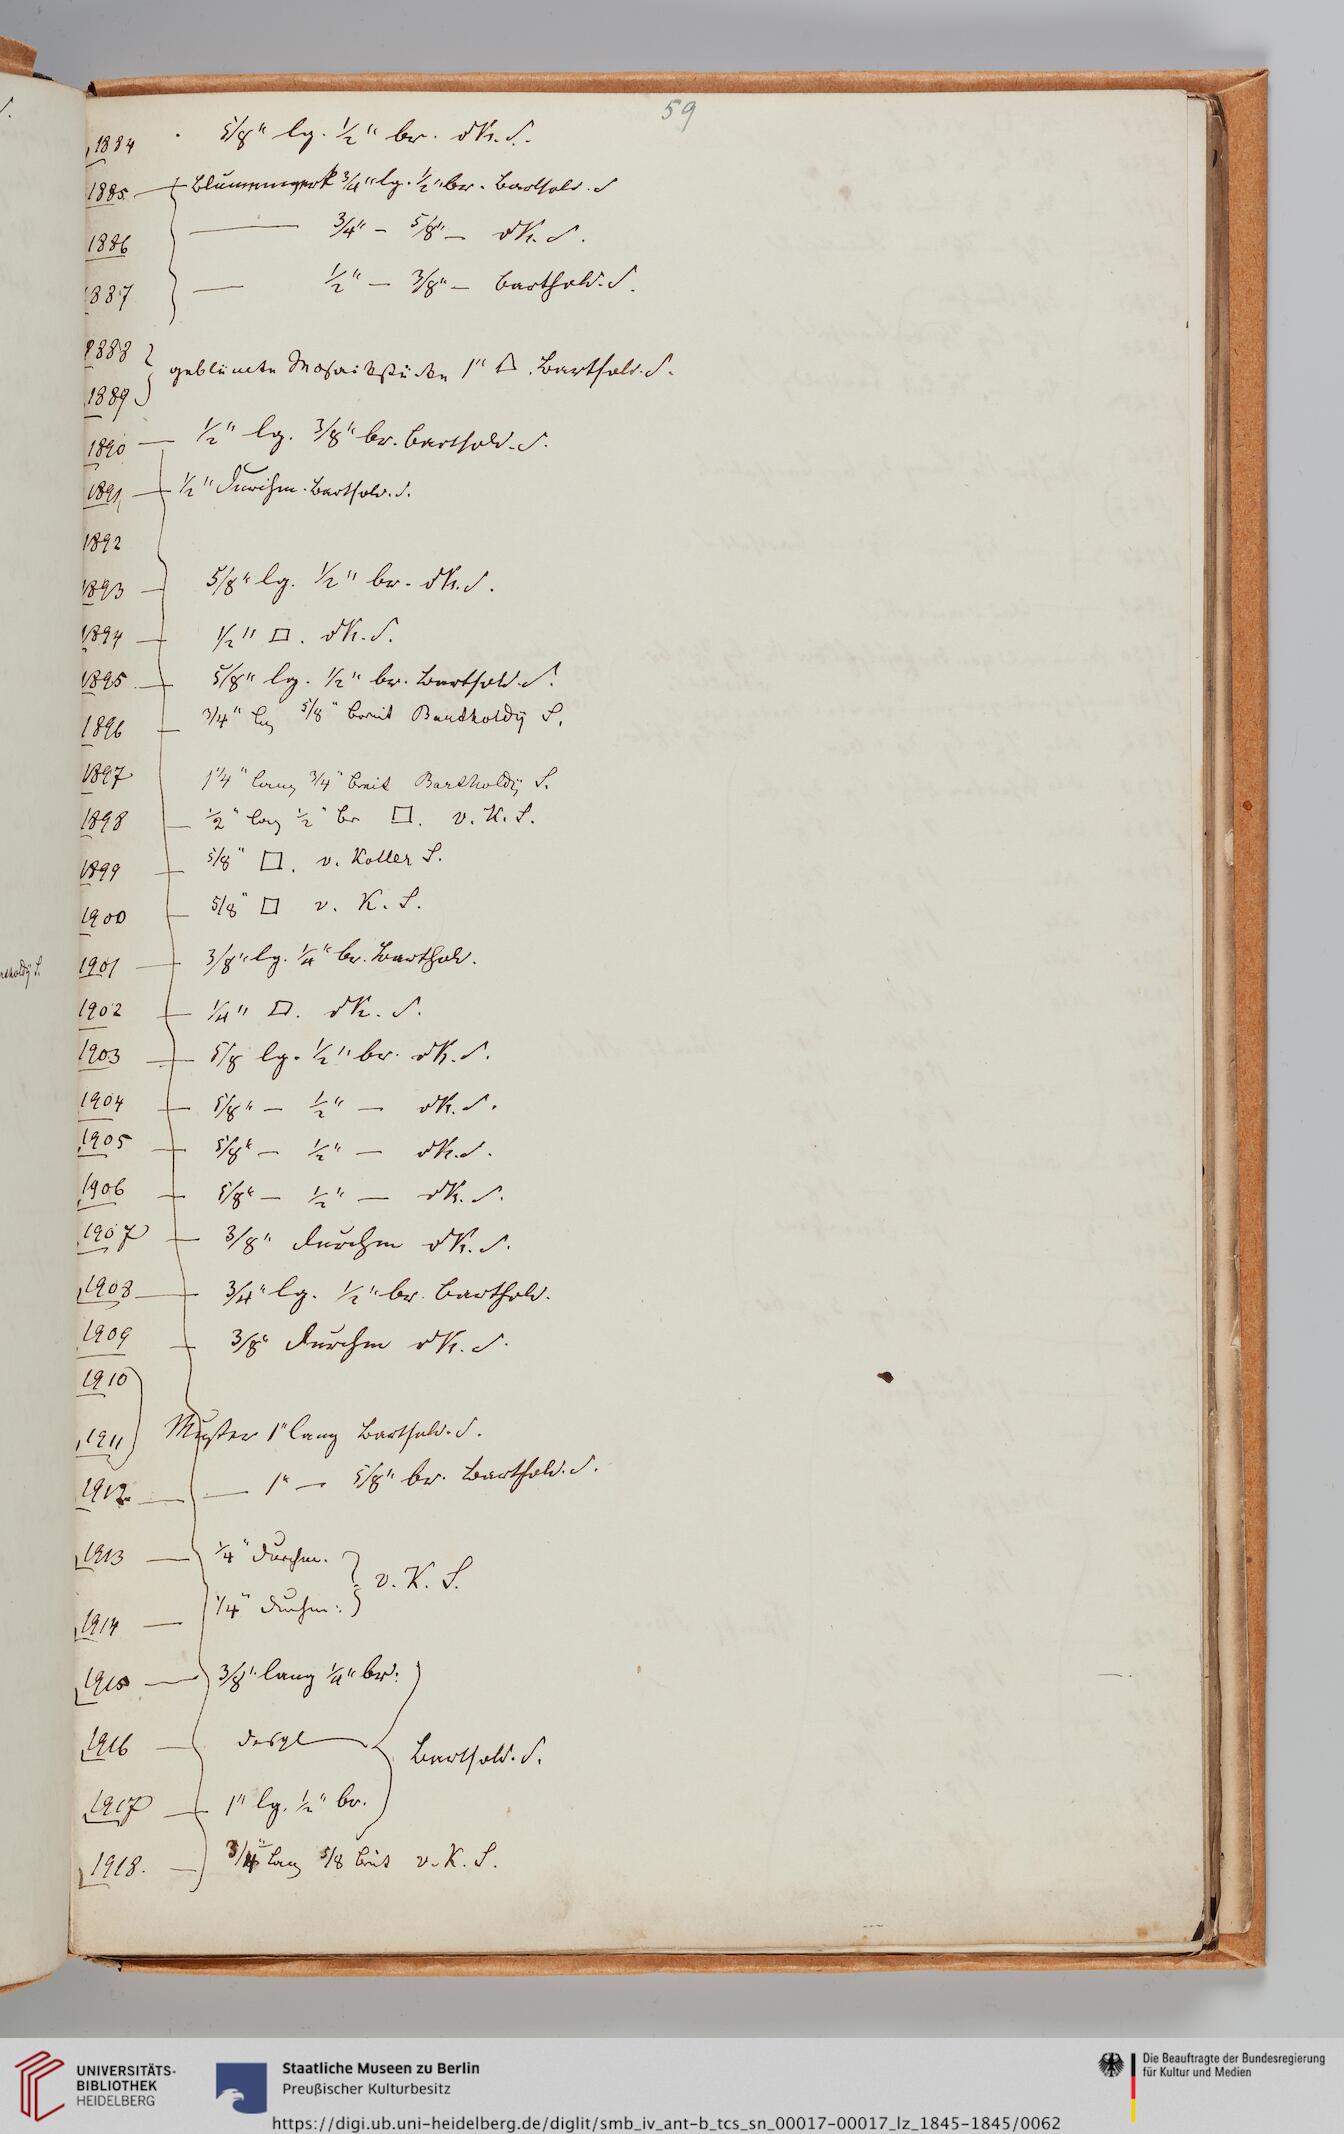 59
1884 5/8" lg. 1/2" br. v K. S.
1885 — Blumenwerk 3/4" lg. 1/2" br. Barthold. S
1886 — 3/4" — 5/8" — v K. S.
1887 — 1/2" — 3/8" — Barthold. S.
1888
geblümte Mosaikstücke 1" □. Barthold. S.
1889
1890 — 1/2" lg. 3/8" br. Barthold. S.
1891 — 1/2" Durchm. Barthold. S.
1892
1893 — 5/8" lg. 1/2" br. v K. S.
1894 — 1/2" □. v K. S.
1895 — 5/8" lg. 1/2" br. Barthold. S.
1896 — 3/4" lg 5/8" breit Bartholdÿ S.
1897 1 1/4" lang 3/4" breit Bartholdÿ S.
1898 — 1/2" lag 1/2" br □. v. K. S.
1899 — 5/8" □. v. Koller S.
1900 — 5/8" □ v. K. S.
1901 — 3/8" lg. 1/4" br. Barthold.
1902 — 1/4" □. v K. S.
1903 — 5/8 lg. 1/2" br. v K. S.
1904 — 5/8" — 1/2" — v K. S.
1905 — 5/8" — 1/2" — v K. S.
1906 — 5/8" — 1/2" — v K. S.
1907 — 3/8" Durchm v K. S.
1908 — 3/4" lg. 1/2" br. Barthold.
1909 — 3/8" Durchm v K. S.
1910
1911 Muster 1" lang Barthold. S.
1912 — — 1" — 5/8" br. Barthold. S.
1913 — 1/4" Durchm.
v. K. S.
1914 — 1/4" Durchm.
1915 — 3/8" lang 1/4" br.
1916 — desgl
Barthold. S.
1917 — 1" lg. 1/2" br.
1918. — 3/4" lang 5/8 breit v. K. S.
UNIVERSITÄTS-
BIBLIOTHEK
HEIDELBERG
Staatliche Museen zu Berlin
Preußischer Kulturbesitz
https://digi.ub.uni-heidelberg.de/diglit/smb_iv_ant-b_tcs_sn_00017-00017_lz_1845-1845/0062
Die Beauftragte der Bundesregierung
für Kultur und Medien